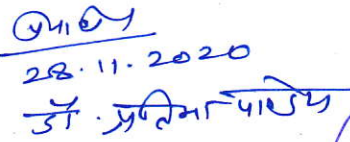 28.11.2020
डॉ. प्रतिमा पाण्डेय